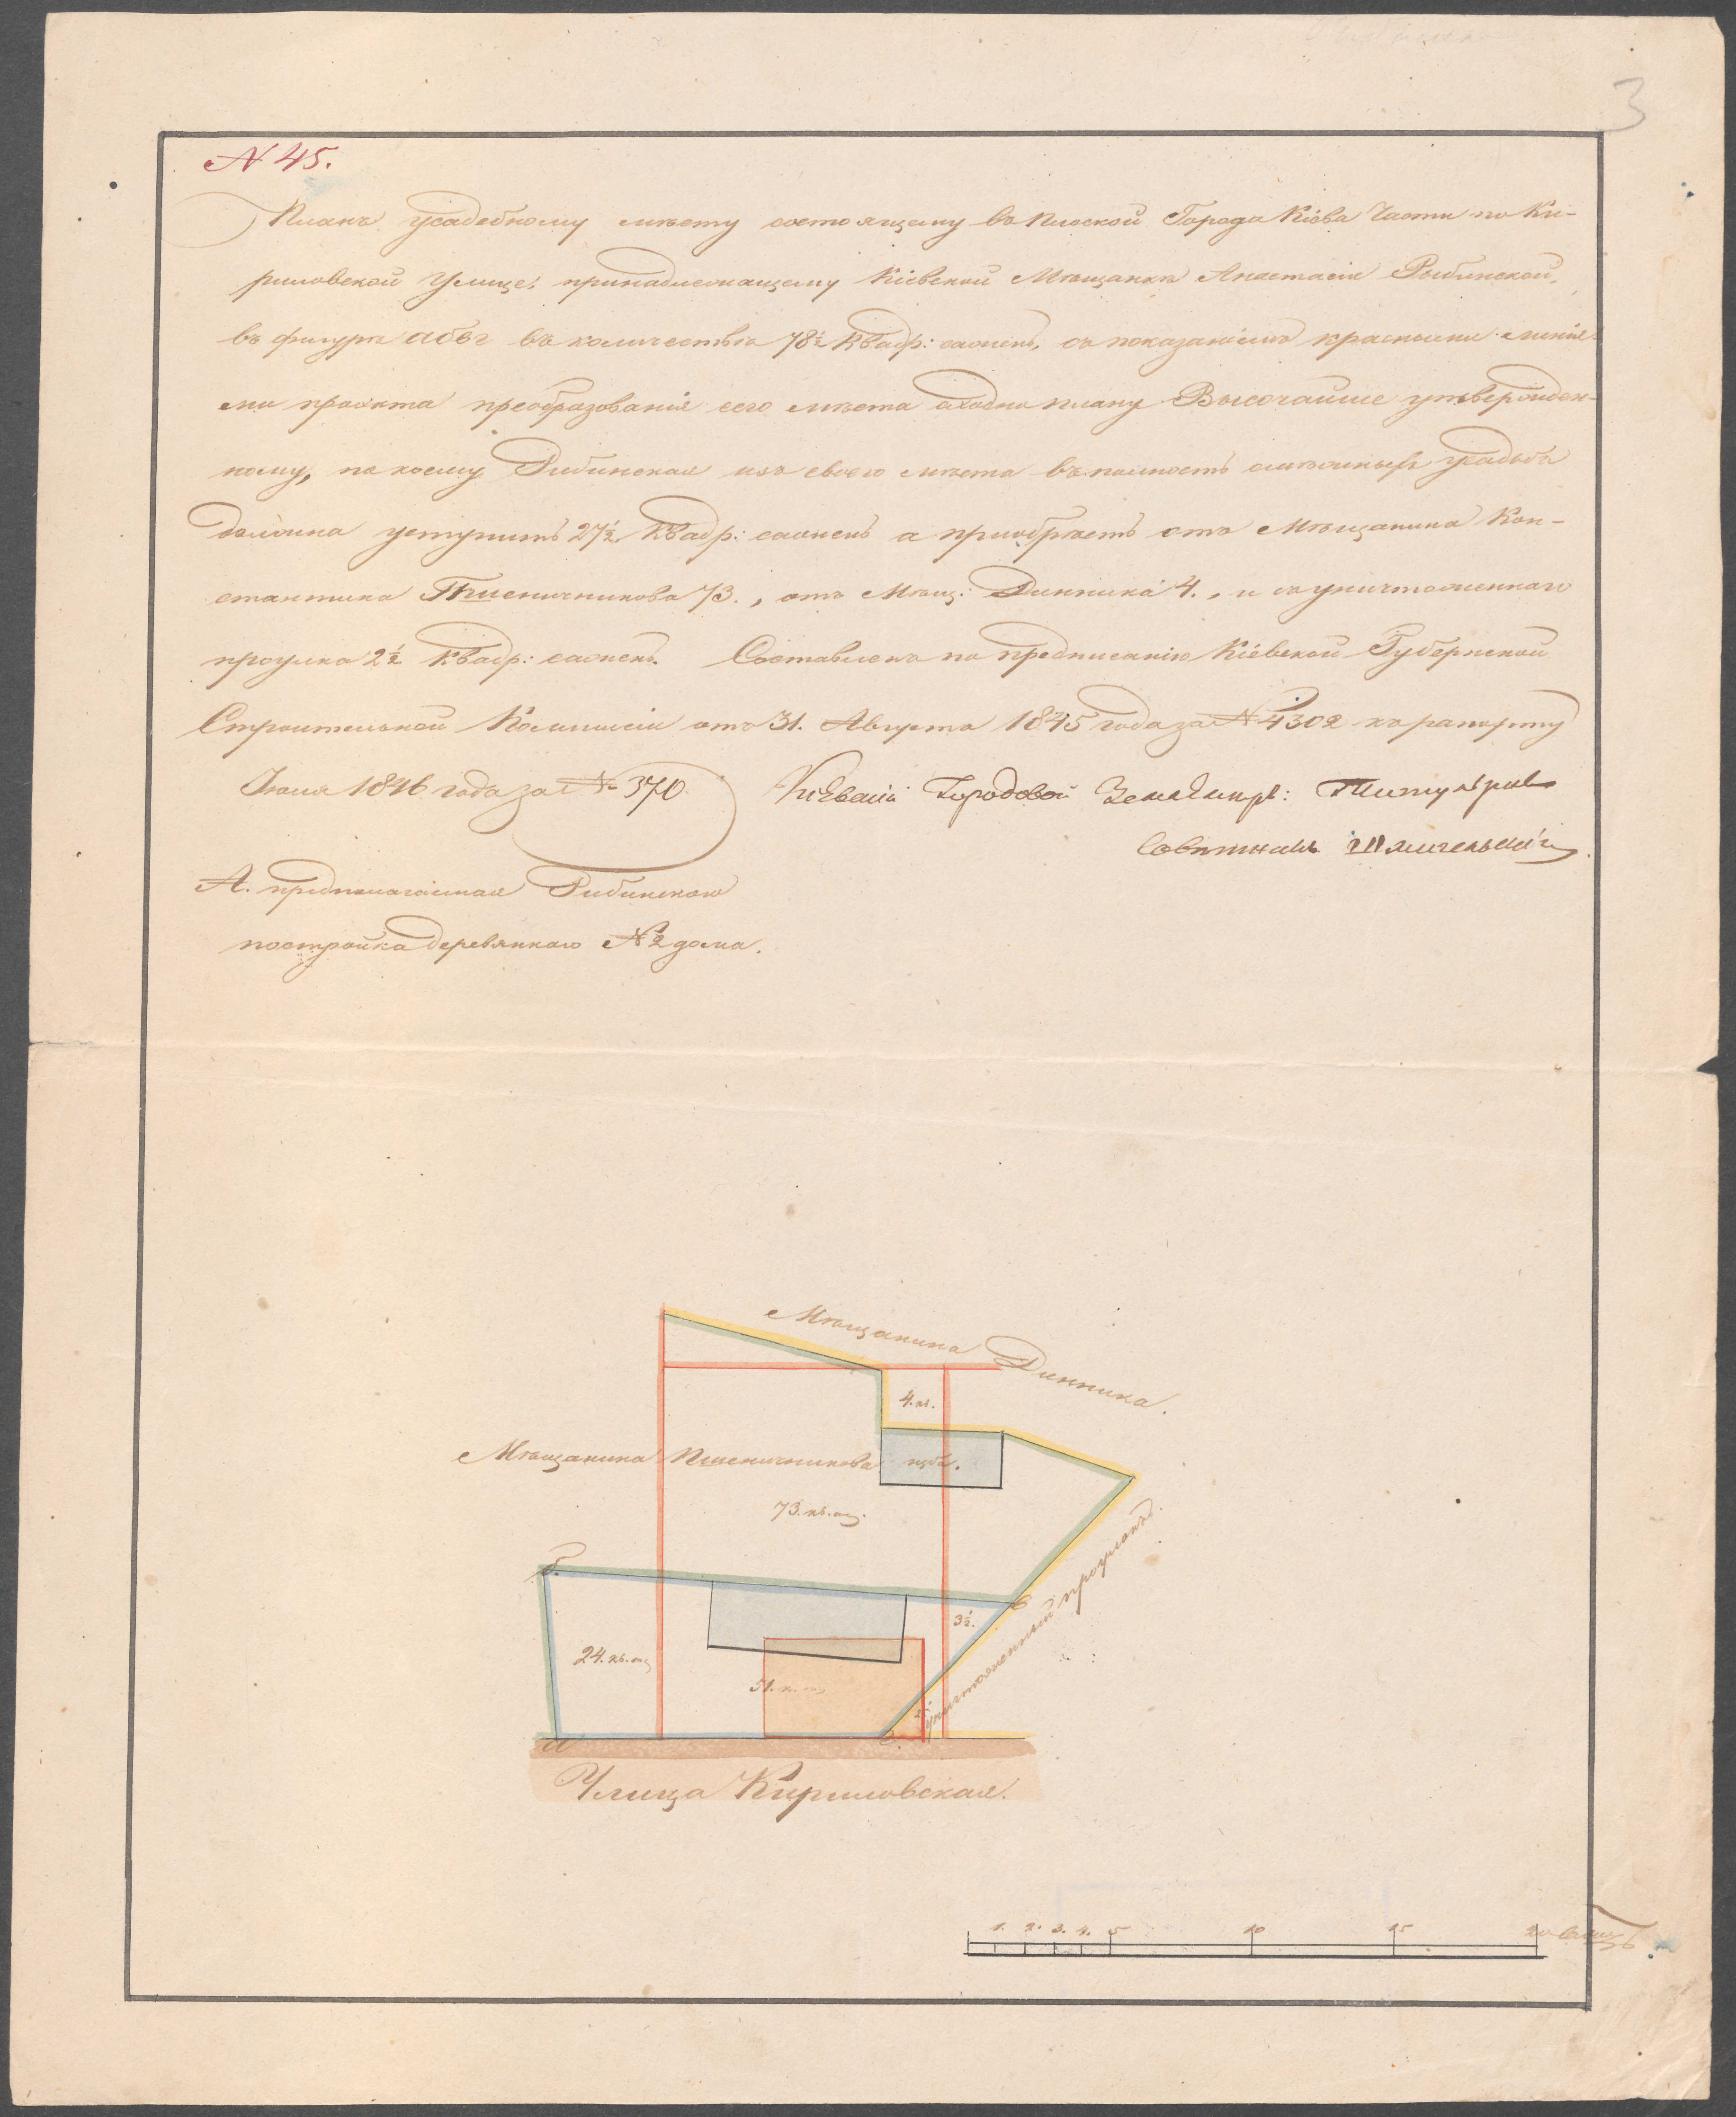 3
N 45.
Планъ усадебному мѣсту состоящему въ Плоской Города Кіева Части по Ки-
риловской Улице, принадлежащему Кіевской Мѣщанкѣ Анастасіи Рыбинской,
въ фигурѣ абвг въ количествѣ 78½ Квадр: сажень, съ показаніемъ красными линія-
ми проэкта преобразованія сего мѣста сходно плану Высочайше утвержден-
ному, по коему Рибинская изъ своего мѣста въ полность смѣжныхъ усадьбъ
должна уступить 27½ Квадр: сажень а приобрѣсть отъ Мѣщанина Кон-
стантина Пшеничникова 73., отъ Мѣщ: Динника 4., и съ уничтоженнаго
проулка 2½ Квадр: сажень. Составленъ по предписанію Кіевской Губернской
Строительной Коммисіи отъ 31. Августа 1845 года за N 4302 къ рапорту
Іюля 1846 года за N 370. Кіевскій Городовой Землемѣръ: Титулярный
Совѣтникъ
А. предполагаемая Рибинскою
постройка деревяннаго N 2 дома.
Мѣщанина Динника.
4. кв.
Мѣщанина Пшеничникова изба.
73. кв. саж.
уничтоженный проулокъ.
б.
в
3½.
24. кв. саж
51. к. саж
2½
а
г.
Улица Кириловская.
1. 2. 3. 4. 5 10 15 20 Саж